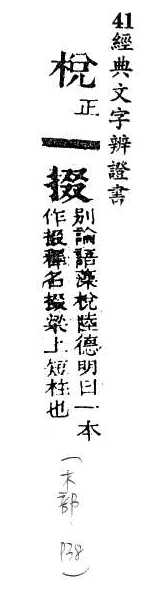 41 經典文字辨證書
梲 正
棳 別論語藻梲陸德明曰一本
作棳釋名棳梁上短柱也
(木部 138)